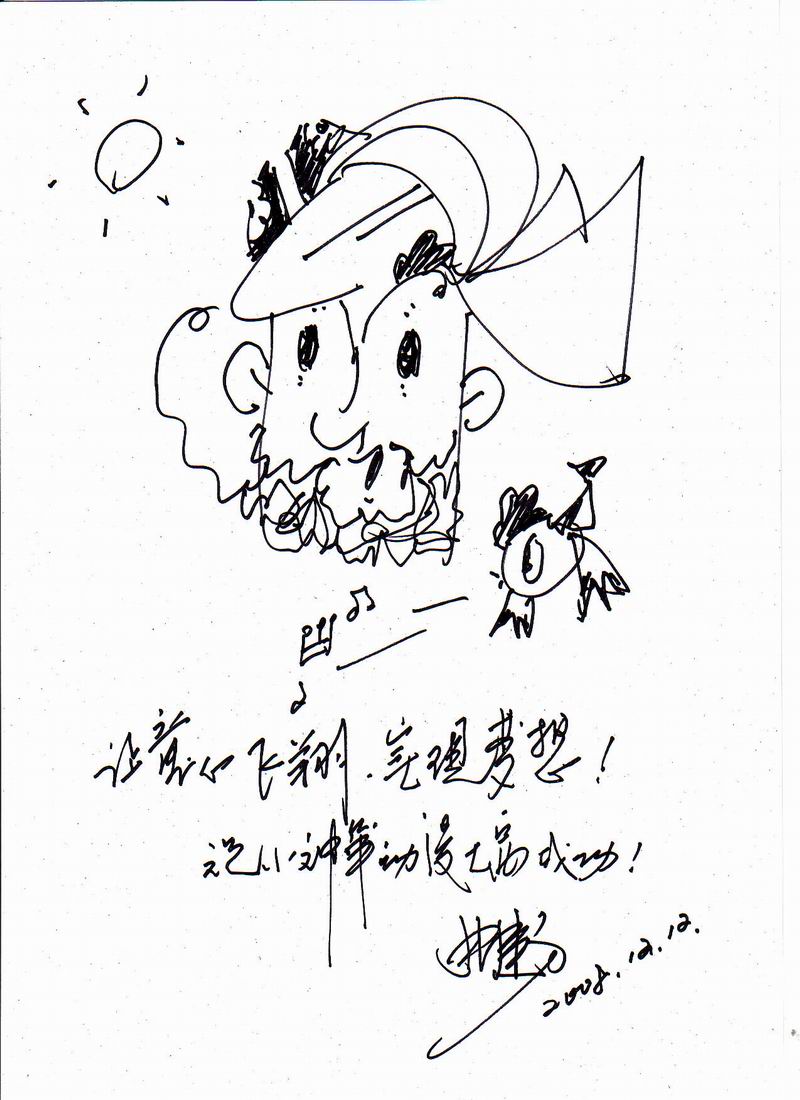 让童心飞翔.实现梦想!
祝小神笔动漫大赛成功!
2008.12.12.